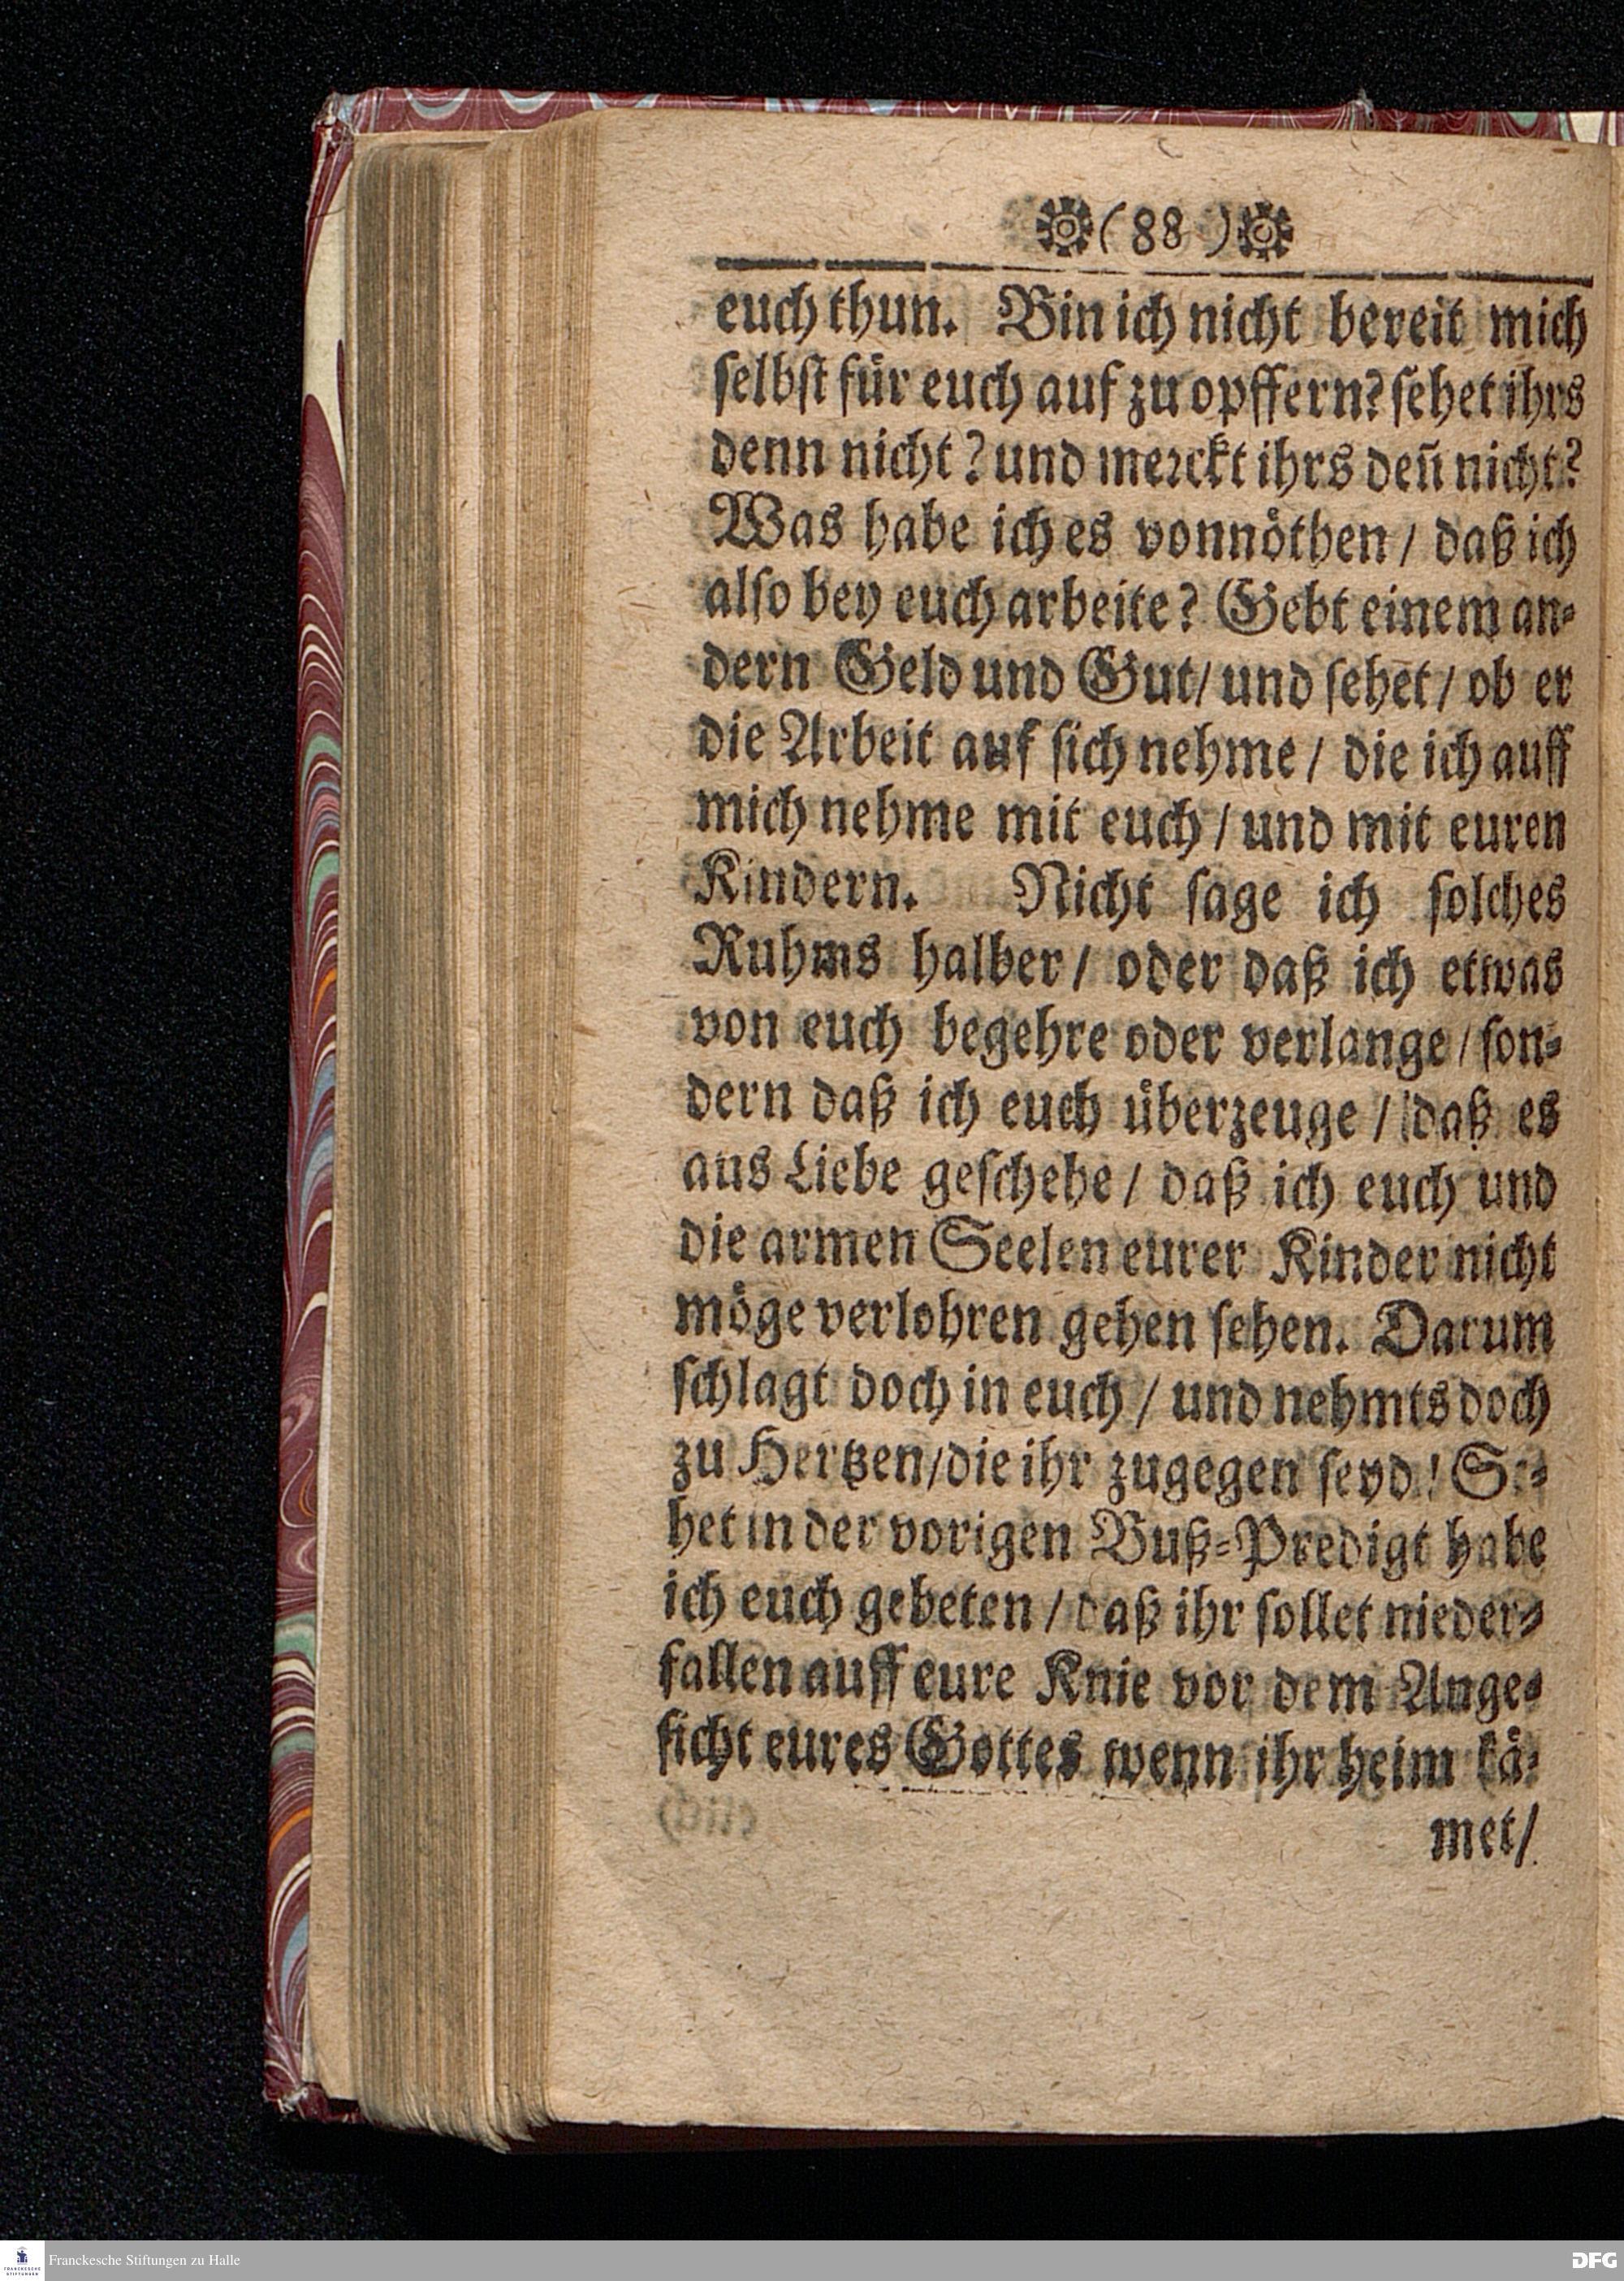 ( 88 )
euch thun. Bin ich nicht bereit mich
selbst für euch auf zu opffern? sehet ihrs
denn nicht? und merckt ihrs deñ nicht?
Was habe ich es vonnöthen / daß ich
also bey euch arbeite? Gebt einem an-
dern Geld und Gut / und sehet / ob er
die Arbeit auf sich nehme / die ich auff
mich nehme mit euch / und mit euren
Kindern. Nicht sage ich solches
Ruhms halber / oder daß ich etwas
von euch begehre oder verlange / son-
dern daß ich euch überzeuge / daß es
aus Liebe geschehe / daß ich euch und
die armen Seelen eurer Kinder nicht
möge verlohren gehen sehen. Darum
schlagt doch in euch / und nehmts doch
zu Hertzen / die ihr zugegen seyd! Se-
het in der vorigen Buß-Predigt habe
ich euch gebeten / daß ihr sollet nieder-
fallen auff eure Knie vor dem Ange-
sicht eures Gottes wenn ihr heim kä-
met /
Franckesche Stiftungen zu Halle
DFG